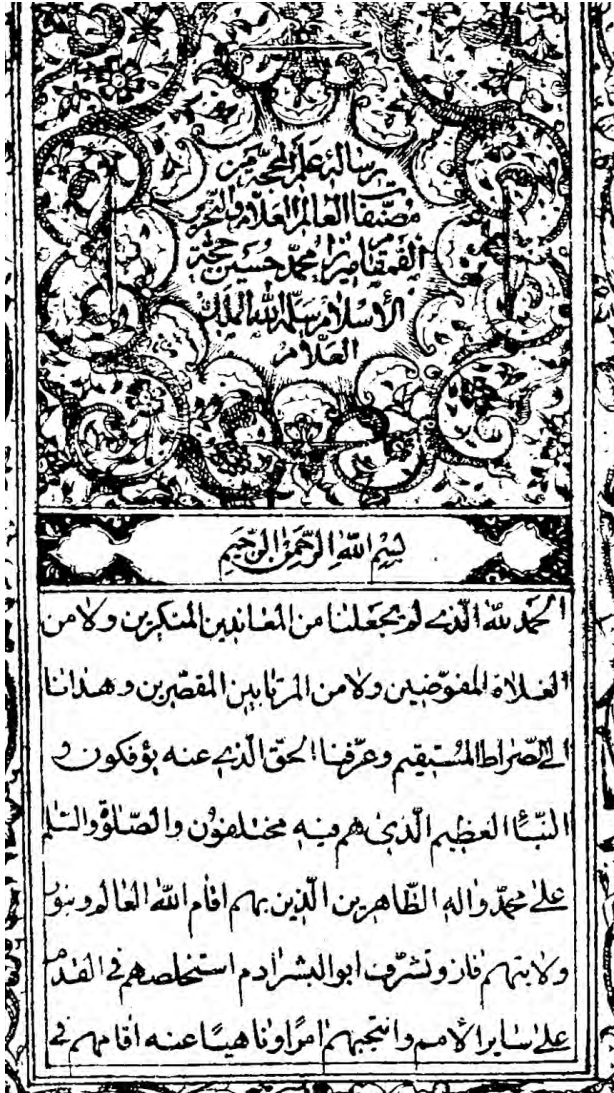 رسالة علم المحجة من
مصنفات العالم العلام والنحرير
القمقام میرزا محمد حسین حجة
الاسلام سلمه الله الملك
العلام
بسم الله الرحمن الرحیم
الحمد لله الذی لم یجعلنا من المعاندین المنکرین ولا من
الغلاة المفوّضین ولا من المرتابین المقصّرین وهدانا
الی الصّراط المستقیم وعرّفنا الحقّ الّذی عنه یؤفکون و
النّبأ العظیم الّذی هم فیه مختلفون والصّلوة والسّلم
علی محمّد واله الطّاهرین الّذین بهم اقام الله العالم وبنور
ولایتهم فاز وتشرّف ابوالبشر ادم استخلصهم فی القدم
علی سایر الامم وانتجبهم امرًا وناهیًا عنه اقامهم فی